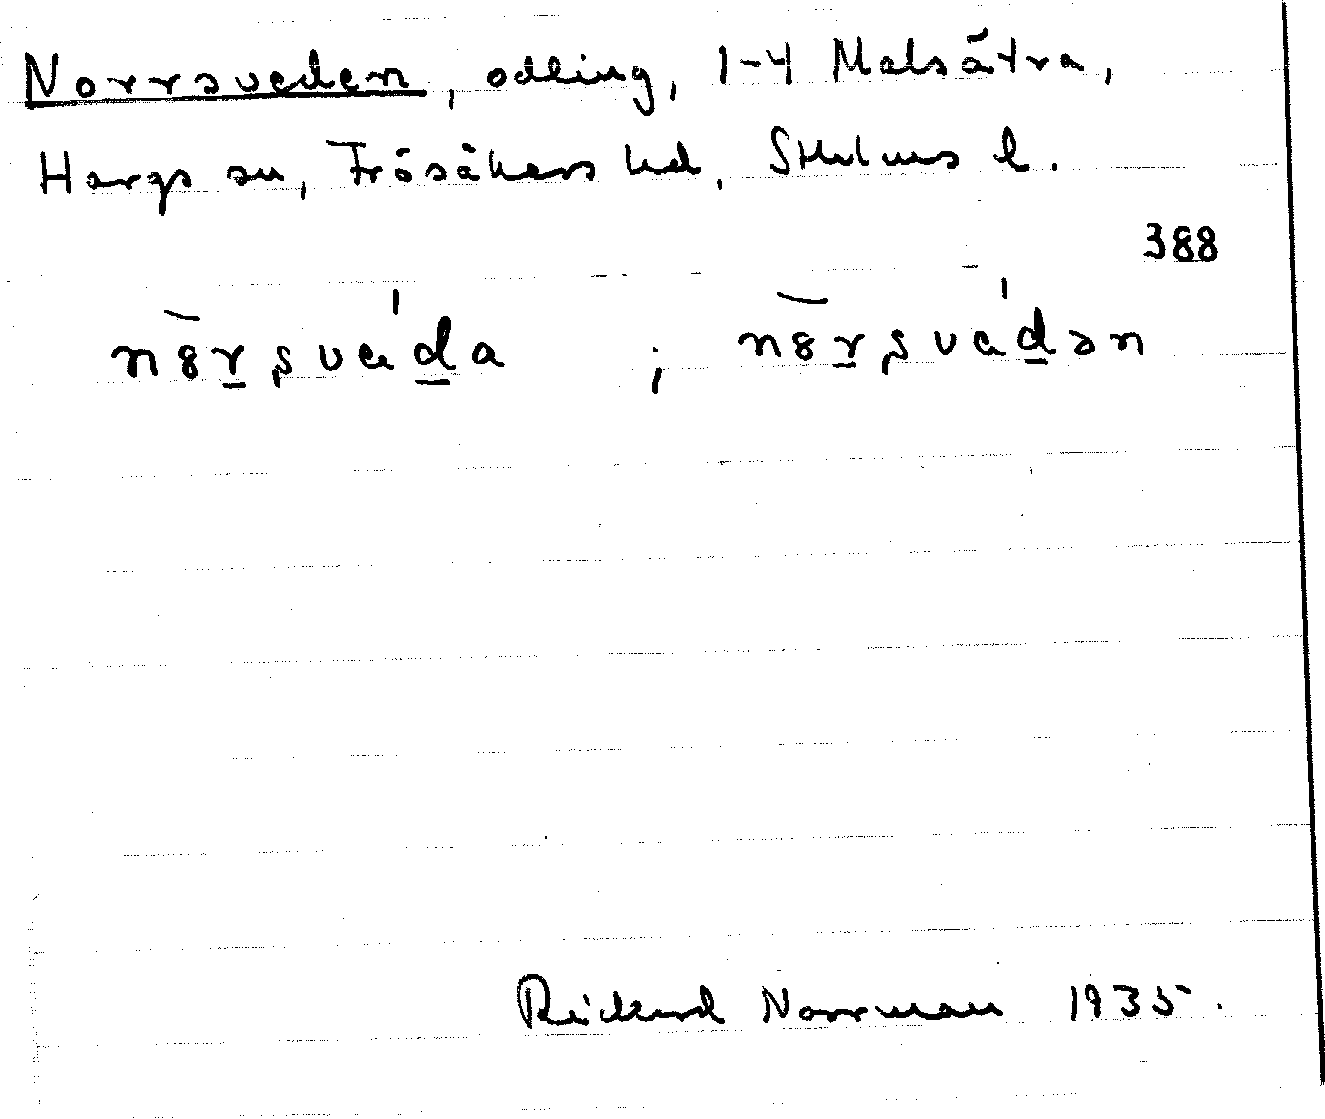 Norrsveden, odling, 1-4 Malsätra,
Hargs sn, Frösåkers hd, Sthlms l.
388
n8̄r̲ṣved̲a ; n8̄r̲ṣved̲ən
Rickard Norrman 1935.